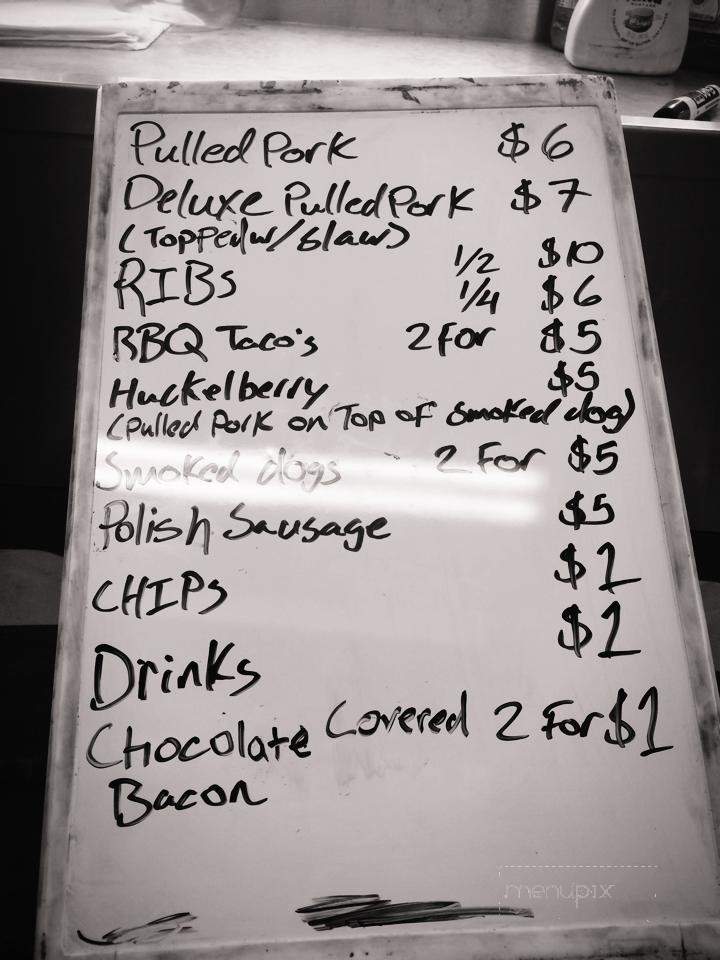 Pulled Pork $6
Deluxe Pulled Pork $7
(Topped w/ Slaw)
RIBs 1/2 $10
1/4 $6
BBQ Taco's 2 For $5
Huckelberry $5
(Pulled Pork on Top of Smoked dog)
Smoked dogs 2 For $5
Polish Sausage $5
CHIPs $1
Drinks $1
Chocolate Covered 2 For $1
Bacon
menupix